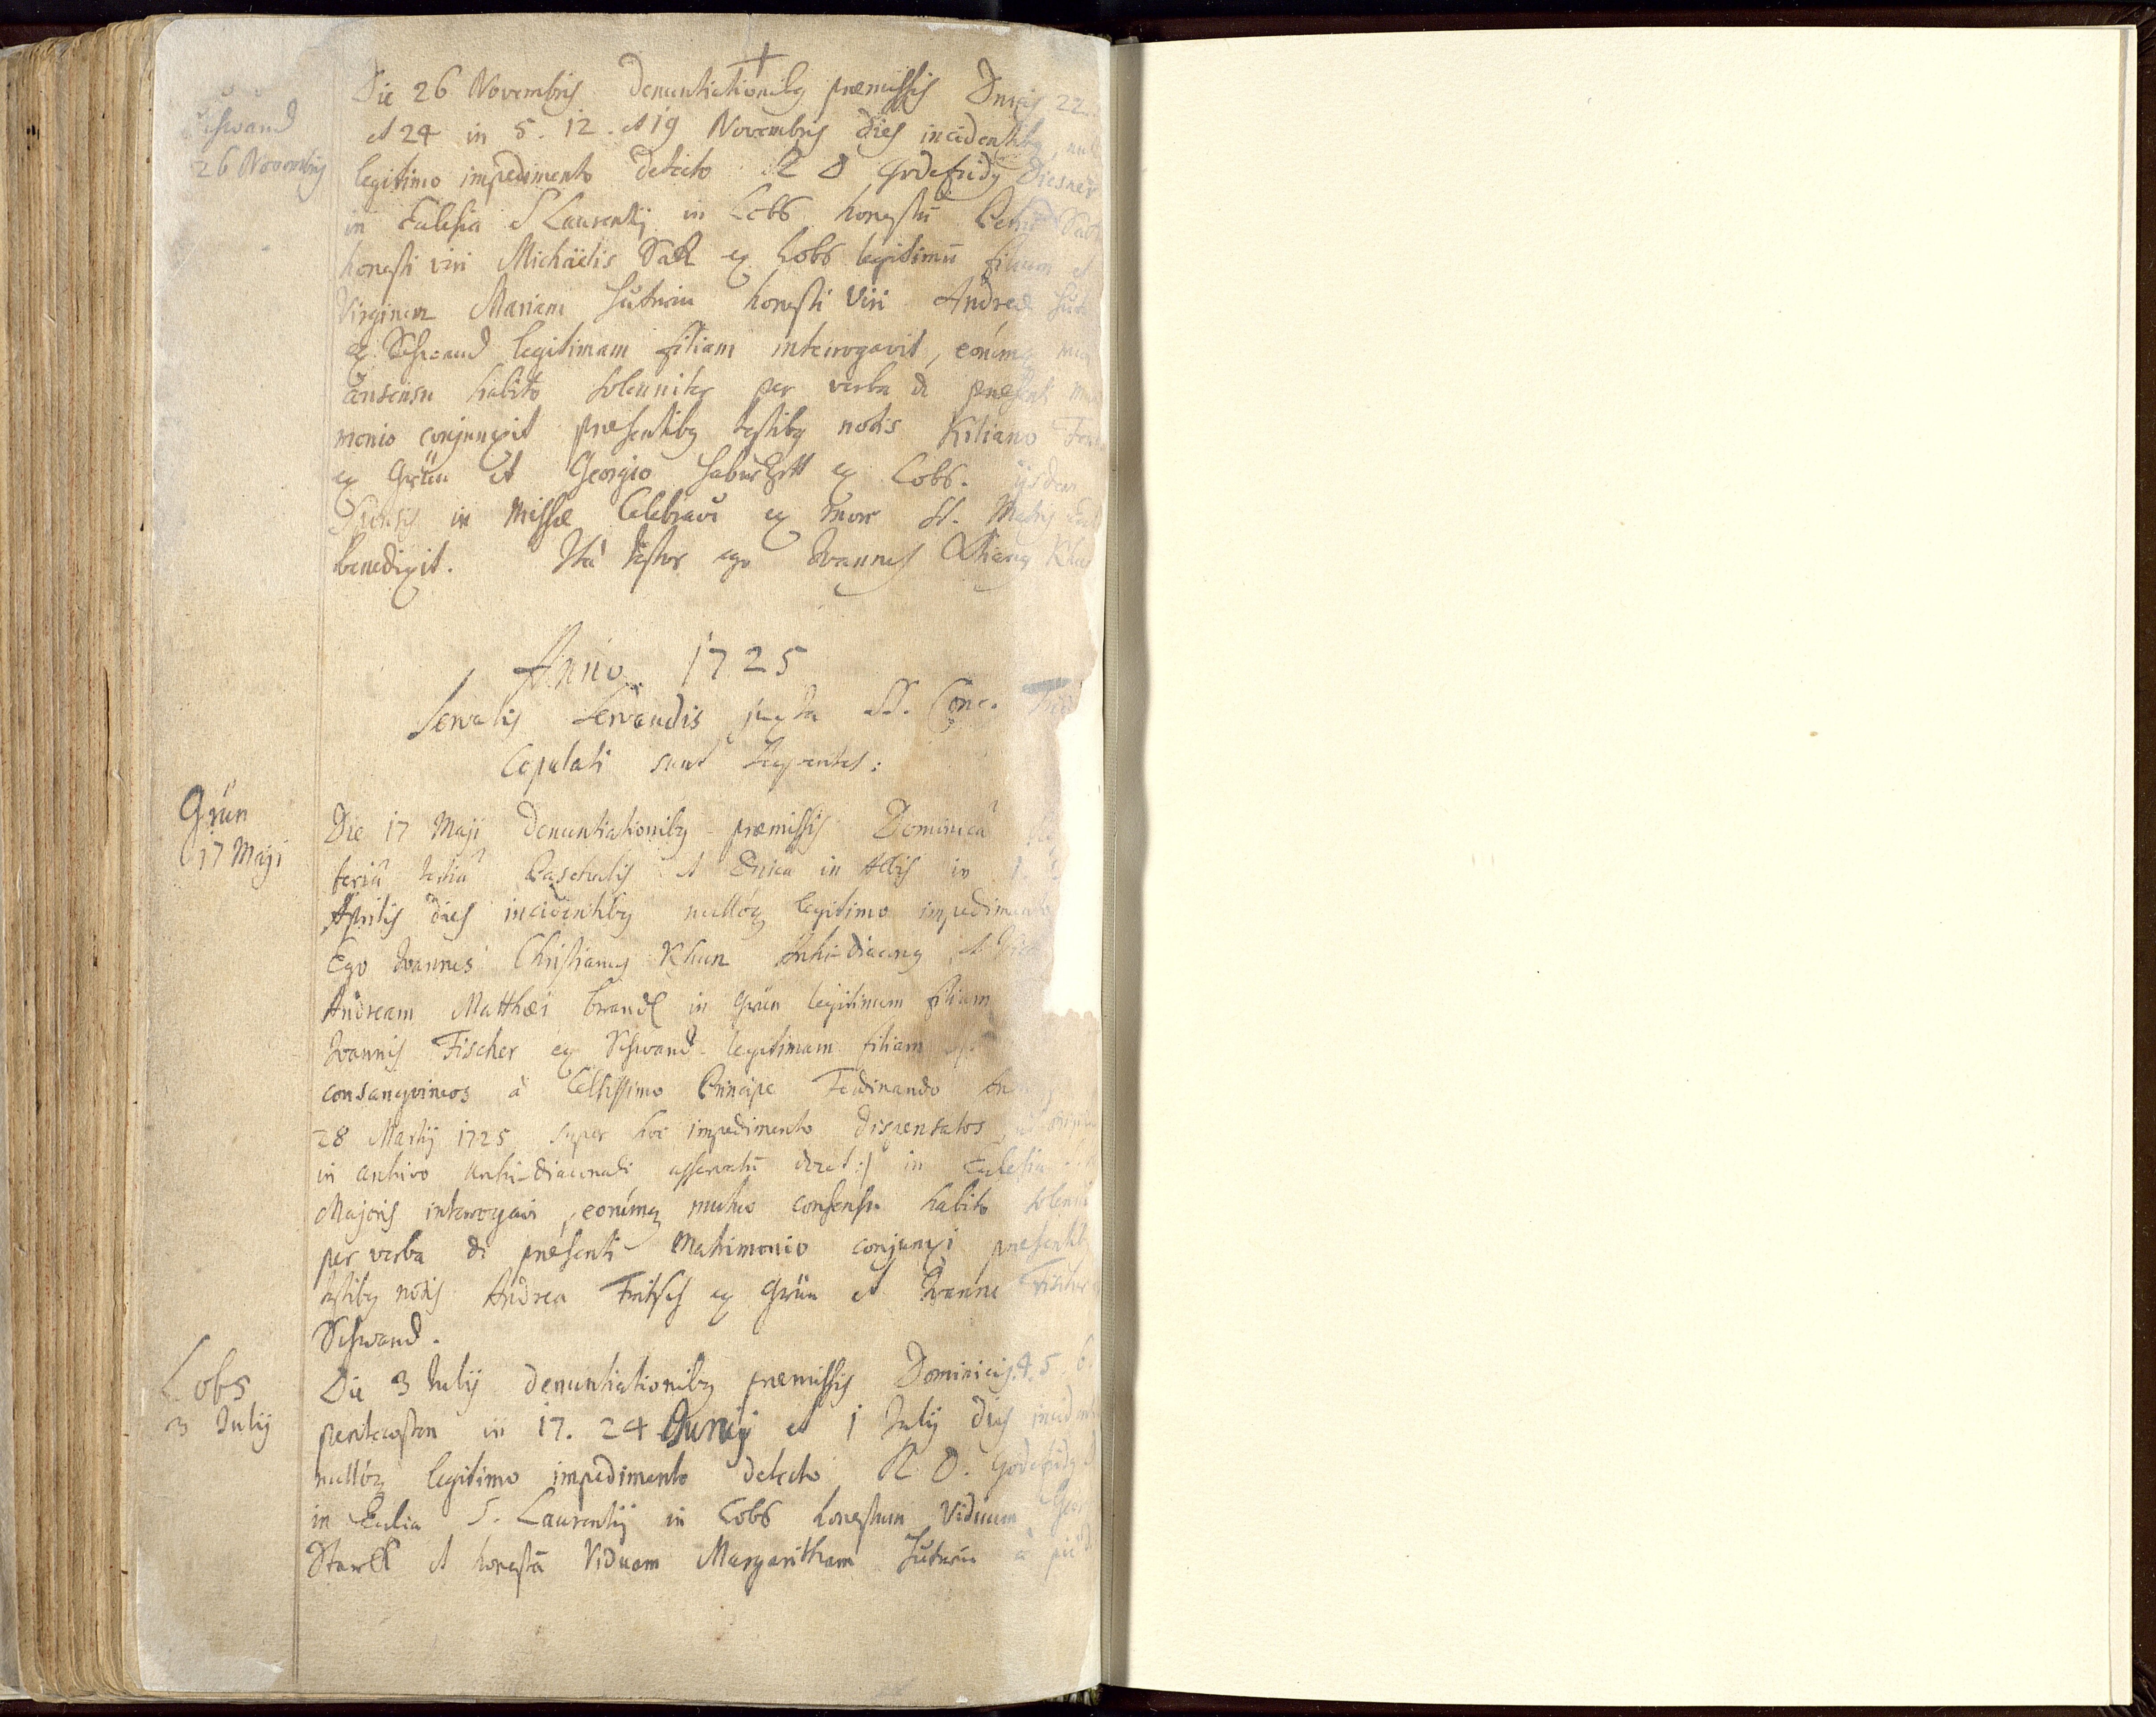 Schwand
26 Novembris
Die 26 Novembris Denuntiationibg praemissis Dnicis 22.
et 24 in 5. 12. et 19 Novembris dies incidentibg,
legitimo impedimento detecto R D Godefridg Diesner
in Ecclesia S Laurentij in Lobs honestũ
honesti viri Michäelis Sack ex Lobs legitimũ filium et
Virginem Mariam honesti Viri Andreæ
ex Schwand legitimam filiam interrogavit, eorũmq
consensu habito solenniter per verba de præsenti
monio conjunxit præsentibg testibg notis Kiliano
ex Grün et Georgio ex Lobs. ijsdem
Sponsis in Missæ celebraõe ex more St. Matris
benedixit. Ità testor ego Joannes
Anno 1725
Servatis Servandis juxta SS. Conc.
Copulati sunt sequentes:
Grün
17 Maji
Die 17 Maji Denuntiationibg praemissis Dominicâ
feriâ tertiâ Paschalis et Dnica in Albis in 1.
Aprilis dies incidentibg nullóq legitimo impedimento
Ego Joannes Christiang Khun Archi-Diacong et
Andream Matthæi Brandl in Grün legitimum filium
Joannis Fischer ex Schwand legitimam filiam
consangvineos à Celsissimo Principe Ferdinando
28 Martij 1725 super hoc impedimento dispensatos
in archivo Archi-Diaconali asservatũ docet:/ in Ecclesia
Majoris interrogavi, eorũmq mutuo consensu habito
per verba de præsenti Matrimonio conjunxi præsentib
testibg notis Andrea Fritsch ex Grün et Joanne Fischer
Schwand.
Lobs
3 Julij
Die 3 Julij denuntiationibg præmissis Dominicis 4. 5. 6.
pentecosten in 17. 24 Junij et 1 Julij dies
nullóq legitimo impedimento detecto R. D. Godefridg
in Ecclia S. Laurentij in Lobs honestum Viduum
Starck et honestã Viduam Margaritham